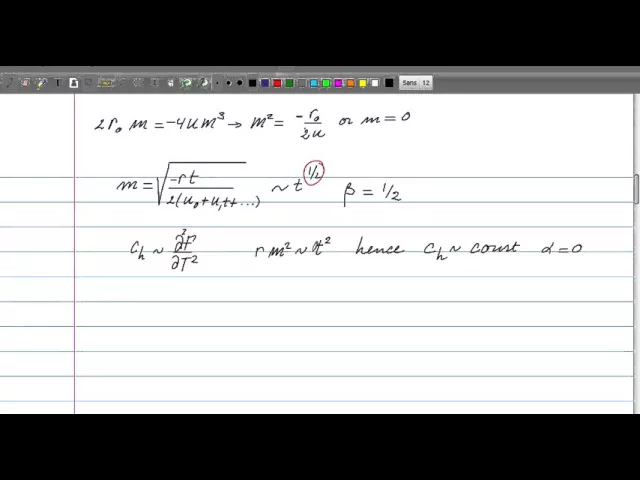 Sans 12
2r₀ m = -4um³ → m² = -r₀/2u or m = 0
m = √(-rt/2(u₀+u₁t+...)) ~ t^1/2 β = 1/2
C_h ~ ∂²F/∂T² r m² ~ t² hence C_h ~ const α = 0